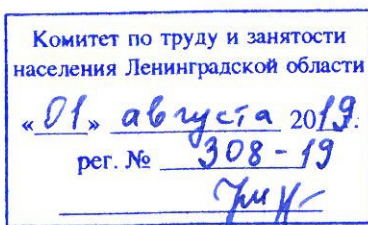 Комитет по труду и занятости
населения Ленинградской области
«01» августа 2019.
рег. № 308-19